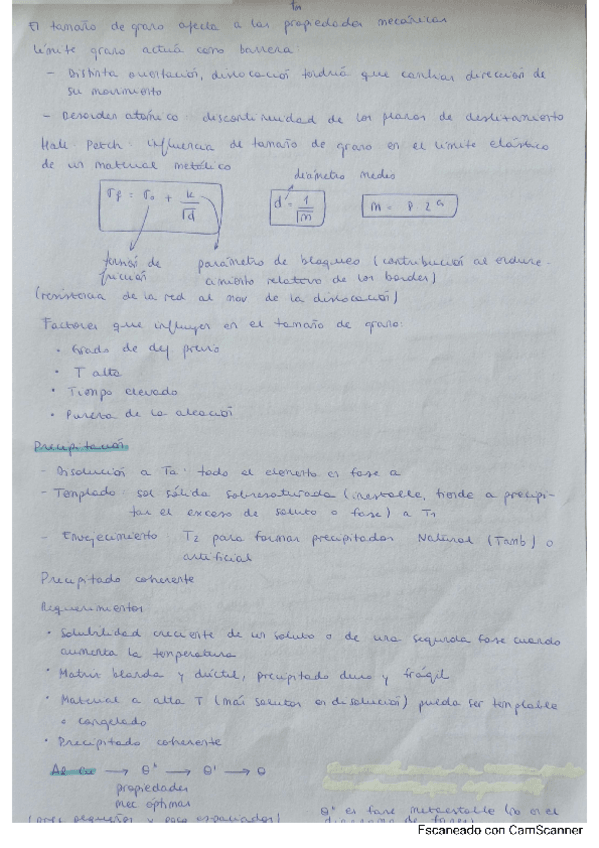 El tamaño de grano afecta a las propiedades mecánicas
Límite grano actúa como barrera:
- Distinta orientación, dislocación tendría que cambiar dirección de
su movimiento
- Desorden atómico: discontinuidad de los planos de deslizamiento
Hall Petch: influencia de tamaño de grano en el límite elástico
de un material metálico
diámetro medio
σf = σ0 + k/√d
d = 1/√m
tensión de fricción
parámetro de bloqueo (contribución al endure-
cimiento relativo de los bordes)
(resistencia de la red al mov de la dislocación)
Factores que influyen en el tamaño de grano:
• Grado de def previo
• T alta
• Tiempo elevado
• Pureza de la aleación
Precipitación
- Disolución a Ta: todo el elemento es fase α
- Templado: sol sólida sobresaturada (inestable, tiende a precipi-
tar el exceso de soluto o fase) a T1
- Envejecimiento: T2 para formar precipitados Natural (Tamb) o
artificial
Precipitado coherente
Requerimientos
• Solubilidad creciente de un soluto o de una segunda fase cuando
aumenta la temperatura
• Matriz blanda y dúctil, precipitado duro y frágil
• Material a alta T (más solutos en disolución) pueda ser templable
o congelado
• Precipitado coherente
Al Cu → θ" → θ' → θ
propiedades
mec óptimas
θ" es fase metaestable (no en el
Escaneado con CamScanner